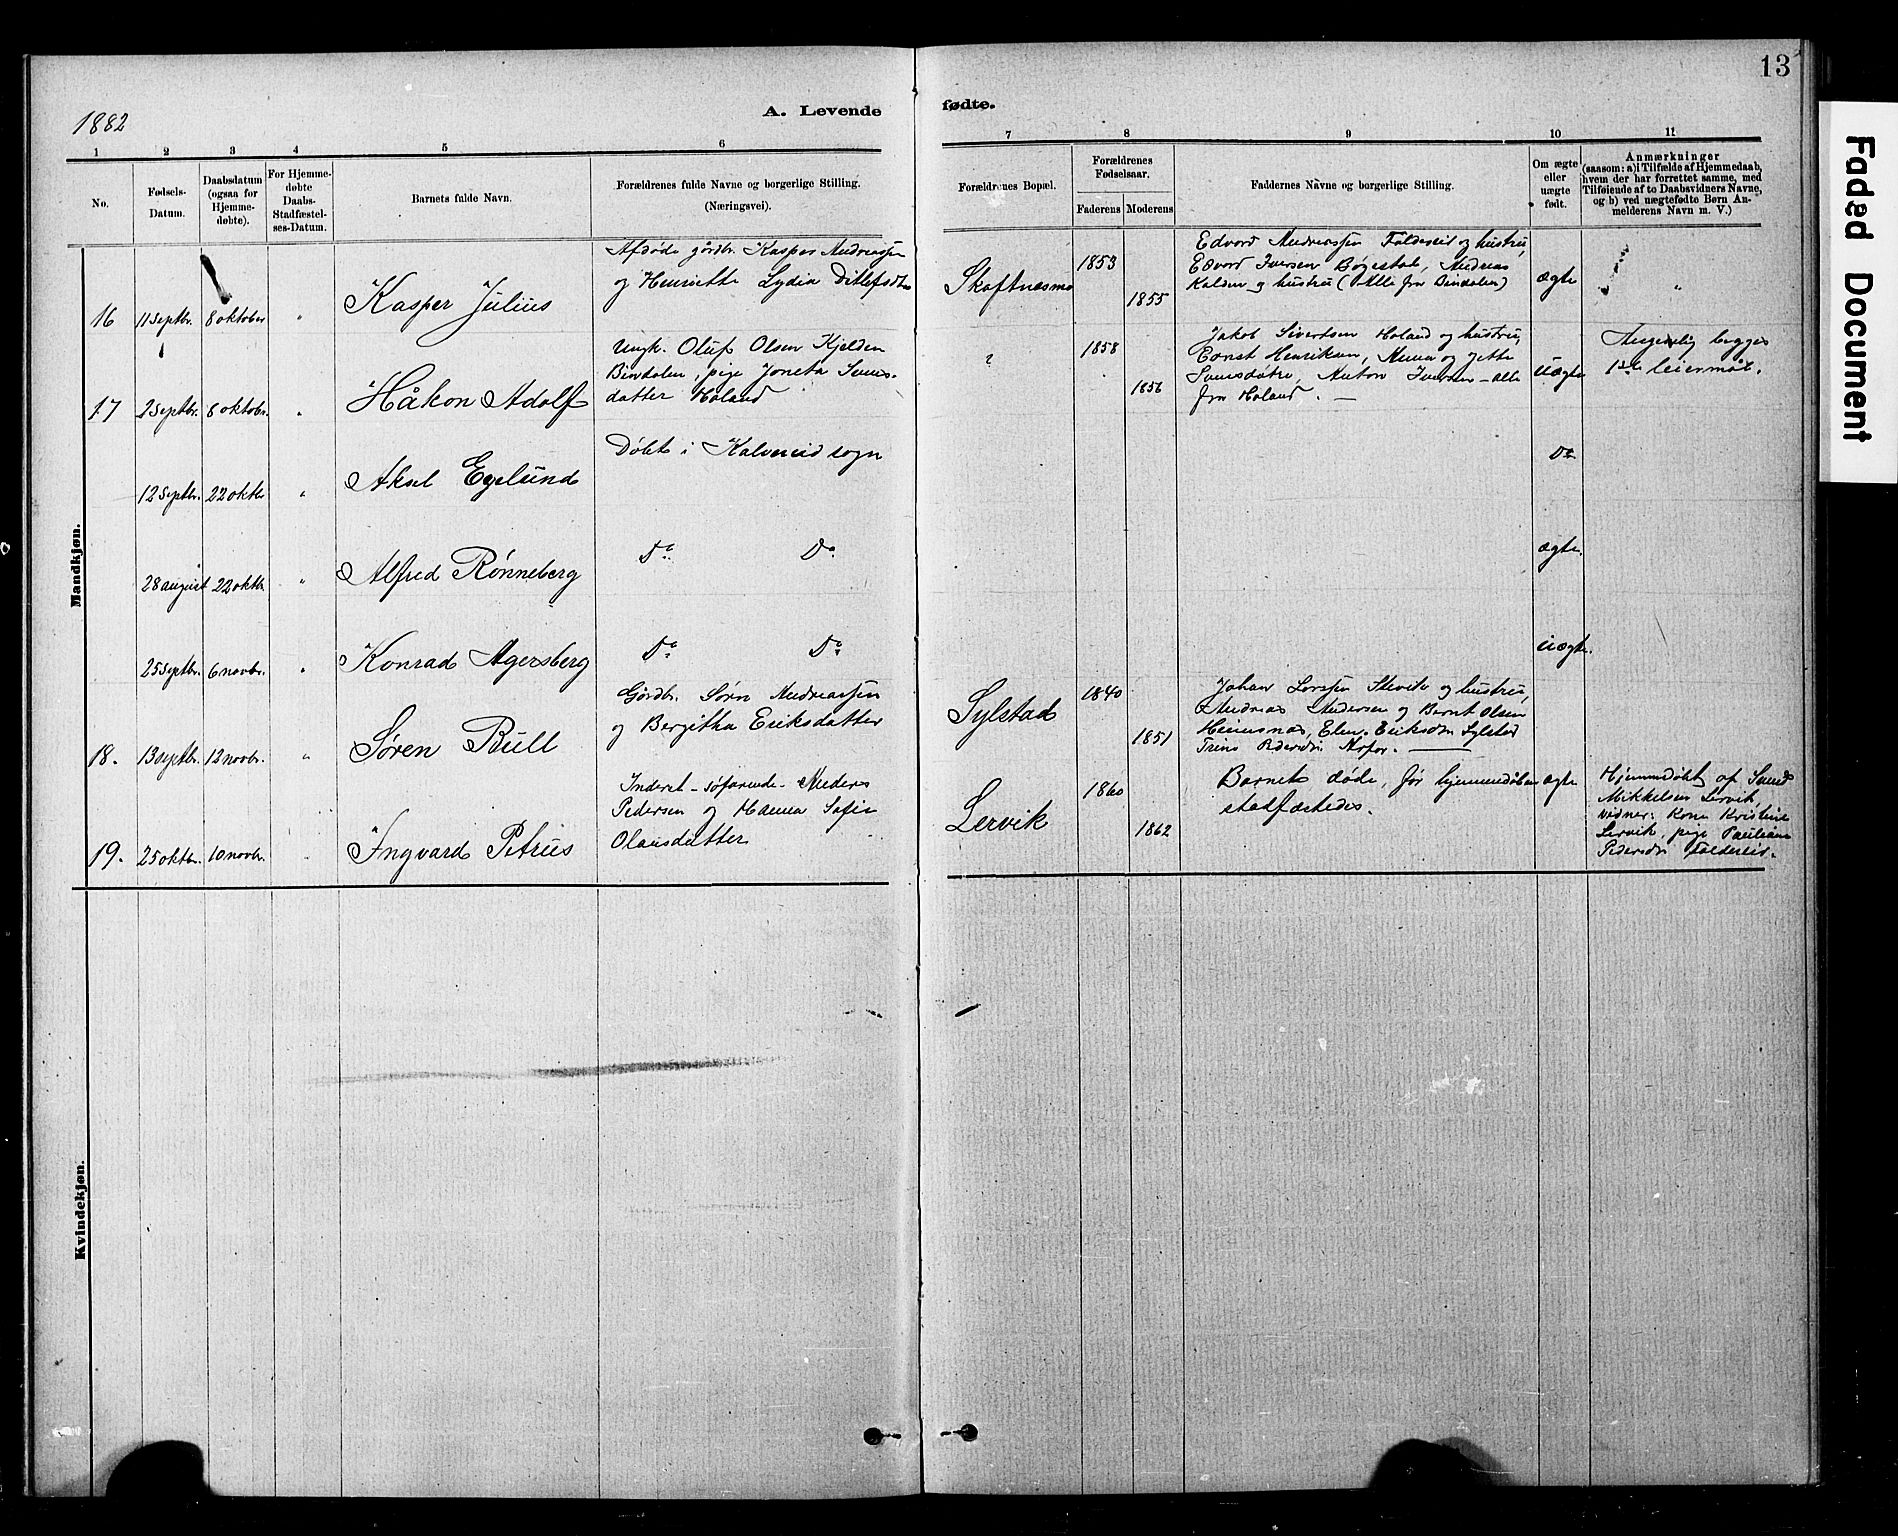 13
1882
A. Levende fødte.
1 2 3 4 5 6 7 8 9 10 11
No.
Fødsels-
Datum.
Daabsdatum
(ogsaa for
Hjemme-
døbte).
For Hjemme-
døbte
Daabs-
Stadfæstel-
ses-Datum.
Barnets fulde Navn.
Forældrenes fulde Navne og borgerlige Stilling.
(Næringsvei).
Forældrenes Bopæl.
Forældrenes
Fødselsaar.
Faderens Moderens
Faddernes Navne og borgerlige Stilling.
Om ægte
eller
uægte
født.
Anmærkninger
(saasom: a) i Tilfælde af Hjemmedaab,
hvem der har forrettet samme, med
Tilføiende af to Daabsvidners Navne,
og b) ved uægtefødte Børn An-
melderens Navn m. V.)
Mandkjøn.
16 11 septbr. 8 oktober " Kasper Julius
Afdøde gårdbr. Kasper Andreassen
og Henriette Lydia Ditlefsdtr
Skaftnæsmo
1853
1855
Edvard Andreassen Foldereid og hustru,
Edvard Iversen Bøgestad, Andreas
Kalden og hustru (Alle fra Bindalen)
ægte
"
17 2 septbr. 8 oktobr. " Håkon Adolf
Ungk. Oluf Olsen Kjelden
Bindalen, pige Joneta Svens-
datter Holand
?
1858
1856
Jakob Sivertsen Holand og hustru,
Ernst Henriksen, Anna og Jette
Svensdøtre, Anton Iversen - alle
fra Holand. —
uægte
Angivelig begges
1ste leiermål.
12 septbr. 22 oktbr " Aksel Egelund
Døbt i Kolvereid sogn
Do
28 august 22 oktbr. " Alfred Rønneberg
Do Do
ægte.
25 septbr. 6 novbr. " Konrad Agersberg
Do Do
uægte.
18. 13 septbr. 12 novbr. " Søren Bull
Gårdbr. Sørn Andreassen
og Bergitha Eriksdatter
Sylstad
1840
1851
Johan Larssen og hustru,
Andreas Andersen og Bernt Olsen
Heimsnæs, Elen Eriksdtr Sylstad
Trine Pedersdtr Arfor. —
19. 25 oktbr. 10 novbr. " Ingvard Petrus
Inderst - søfarende - Anders
Pedersen og Hanna Sofie
Olausdatter
Lervik
1860
1862
Barnet døde, før hjemmedåben
stadfæstedes.
ægte
Hjemmedøbt af Svend
Mikkelsen Lervik,
vidner: Kone Kristine
Lervik, pige Pauliane
Pedersdtr Foldereid.
Kvindekjøn.
Faded Document